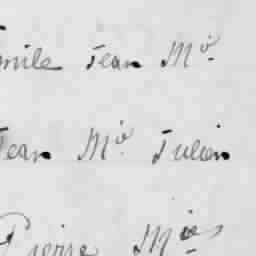 mile Jean Mie
Jean Mie Julien
Pierre Mie